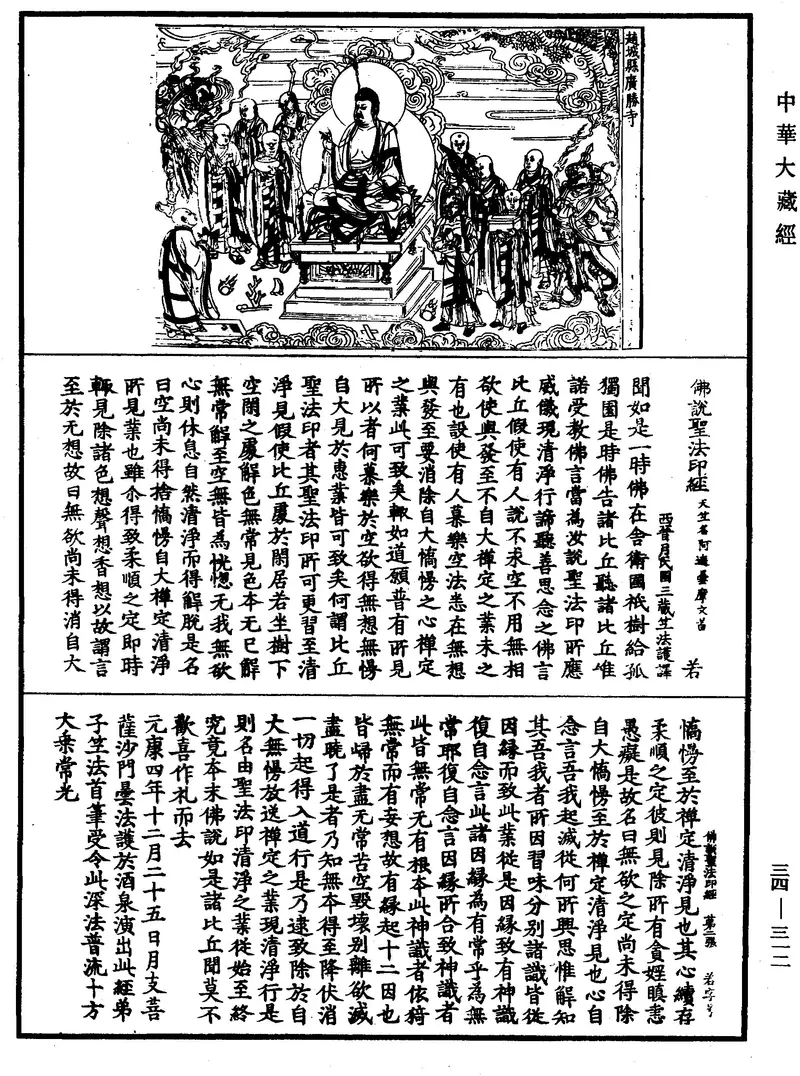 中華大藏經
趙城縣廣勝寺
佛說聖法印經 天竺名阿遮曇摩文啚 若
西晉月氏國三藏竺法護譯
聞如是一時佛在舍衛國祇樹給孤
獨園是時佛告諸比丘聽諸比丘唯
諾受教佛言當為汝說聖法印所應
威儀現清淨行諦聽善思念之佛言
比丘假使有人說不求空不用無相
欲使興發至不自大禪定之業未之
有也設使有人慕樂空法志在無想
興發至要消除自大憍慢之心禪定
之業此可致矣輒如道願普有所見
所以者何慕樂於空欲得無想無慢
自大見於惠業皆可致矣何謂比丘
聖法印者其聖法印所可更習至清
淨見假使比丘處於閑居若坐樹下
空閑之處解色無常見色本无已解
無常解至空無皆為恍惚无我無欲
心則休息自然清淨而得解脫是名
曰空尚未得捨憍慢自大禪定清淨
所見業也雖尒得致柔順之定即時
輒見除諸色想聲想香想以故謂言
至於无想故曰無欲尚未得消自大
憍慢至於禪定清淨見也其心續存
柔順之定彼則見除所有貪婬瞋恚
愚癡是故名曰無欲之定尚未得除
自大憍慢至於禪定清淨見也心自
念言吾我起滅從何所興思惟解知
其吾我者所因習味分別諸識皆從
因緣而致此業從是因緣致有神識
復自念言此諸因緣為有常乎為無
常耶復自念言因緣所合致神識者
此皆無常无有根本此神識者依猗
無常而有妄想故有緣起十二因也
皆歸於盡无常苦空毀壞別離欲滅
盡曉了是者乃知無本得至降伏消
一切起得入道行是乃逮致除於自
大無慢放逸禪定之業現清淨行是
則名由聖法印清淨之業從始至終
究竟本末佛說如是諸比丘聞莫不
歡喜作礼而去
元康四年十二月二十五日月支菩
薩沙門曇法護於酒泉演出此經弟
子竺法首筆受令此深法普流十方
大乘常光
佛說聖法印經 第二張 若字号
三四—三一二